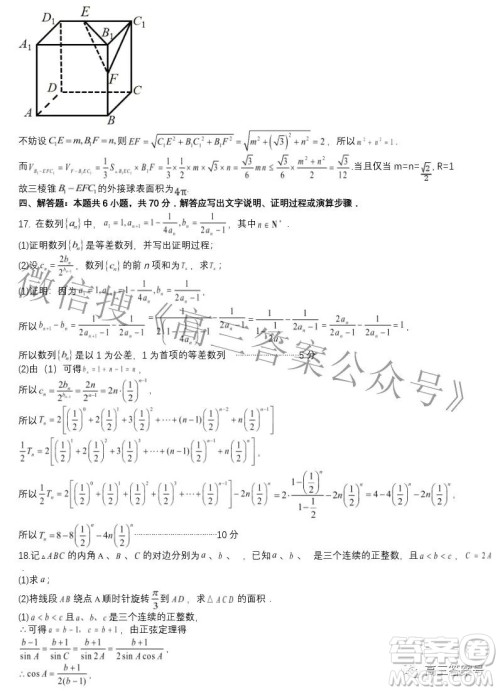 D₁ E C₁
A₁ B₁
F
D C
A B
不妨设 C₁E=m, B₁F=n, 则 EF=√(C₁E²+B₁C₁²+B₁F²)=√(m²+(√3)²+n²)=2，所以 m²+n²=1.
而 V_{B₁-EFC₁}=V_{F-B₁EC₁}=1/3 S_{△B₁EC₁}×B₁F=1/3×1/2×m×√3×n=√3/6 mn≤√3/6×(m²+n²)/2=√3/12. 当且仅当 m=n=√2/2, R=1
故三棱锥 B₁-EFC₁ 的外接球表面积为 4π.
四、解答题：本大题共 6 小题，共 70 分．解答应写出文字说明、证明过程或演算步骤．
17. 在数列{aₙ}中， a₁=1, aₙ₊₁=1-1/(4aₙ), bₙ=1/(2aₙ-1)，其中 n∈N*.
(1)证明数列{bₙ}是等差数列，并写出证明过程；
(2)设 cₙ=2bₙ/2^{bₙ₋₁}．数列{cₙ}的前 n 项和为 Tₙ，求 Tₙ；
(1)证明．因为 a₁=1, aₙ₊₁=1-1/(4aₙ), bₙ=1/(2aₙ-1)
所以 bₙ₊₁-bₙ=1/(2aₙ₊₁-1)-1/(2aₙ-1)=1/(2(1-1/(4aₙ))-1)-1/(2aₙ-1)=2aₙ/(2aₙ-1)-1/(2aₙ-1)=1，
所以数列{bₙ}是以 1 为公差，1 为首项的等差数列 ⋯⋯⋯⋯5 分
(2)由（1）可得 bₙ=1+n-1=n，
所以 cₙ=2bₙ/2^{bₙ₋₁}=2n/2ⁿ⁻¹=2n·(1/2)ⁿ⁻¹，
所以 Tₙ=2[(1/2)⁰+2(1/2)¹+3(1/2)²+⋯+(n-1)(1/2)ⁿ⁻²+n(1/2)ⁿ⁻¹]，
1/2Tₙ=2[(1/2)¹+2(1/2)²+3(1/2)³+⋯+(n-1)(1/2)ⁿ⁻¹+n(1/2)ⁿ]，
所以 1/2Tₙ=2[(1/2)⁰+(1/2)¹+(1/2)²+(1/2)³+⋯+(1/2)ⁿ⁻¹]-2n(1/2)ⁿ=2·(1-(1/2)ⁿ)/(1-1/2)-2n(1/2)ⁿ=4-4(1/2)ⁿ-2n(1/2)ⁿ，
所以 Tₙ=8-8(1/2)ⁿ-4n(1/2)ⁿ ⋯⋯⋯⋯10 分
18.记△ABC 的内角 A、B、C 的对边分别为 a、b、 ，已知 a、b、 是三个连续的正整数，且 a<b<c，C=2A．
(1)求 a；
(2)将线段 AB 绕点 A 顺时针旋转 π/3 到 AD，求△ACD 的面积．
(1) a<b<c 且 a、b、c 是三个连续的正整数，
∴可得 a=b-1，c=b+1，由正弦定理得
(b-1)/sinA=(b+1)/sinC=(b+1)/sin2A=(b+1)/(2sinAcosA)，
∴cosA=(b+1)/(2(b-1))
微信搜《高三答案公众号》
高三答案号